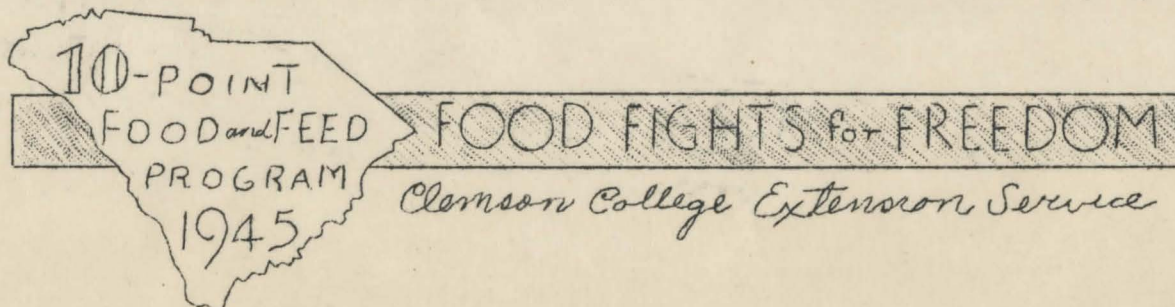 10-POINT
FOOD and FEED
PROGRAM
1945
FOOD FIGHTS for FREEDOM
Clemson College Extension Service